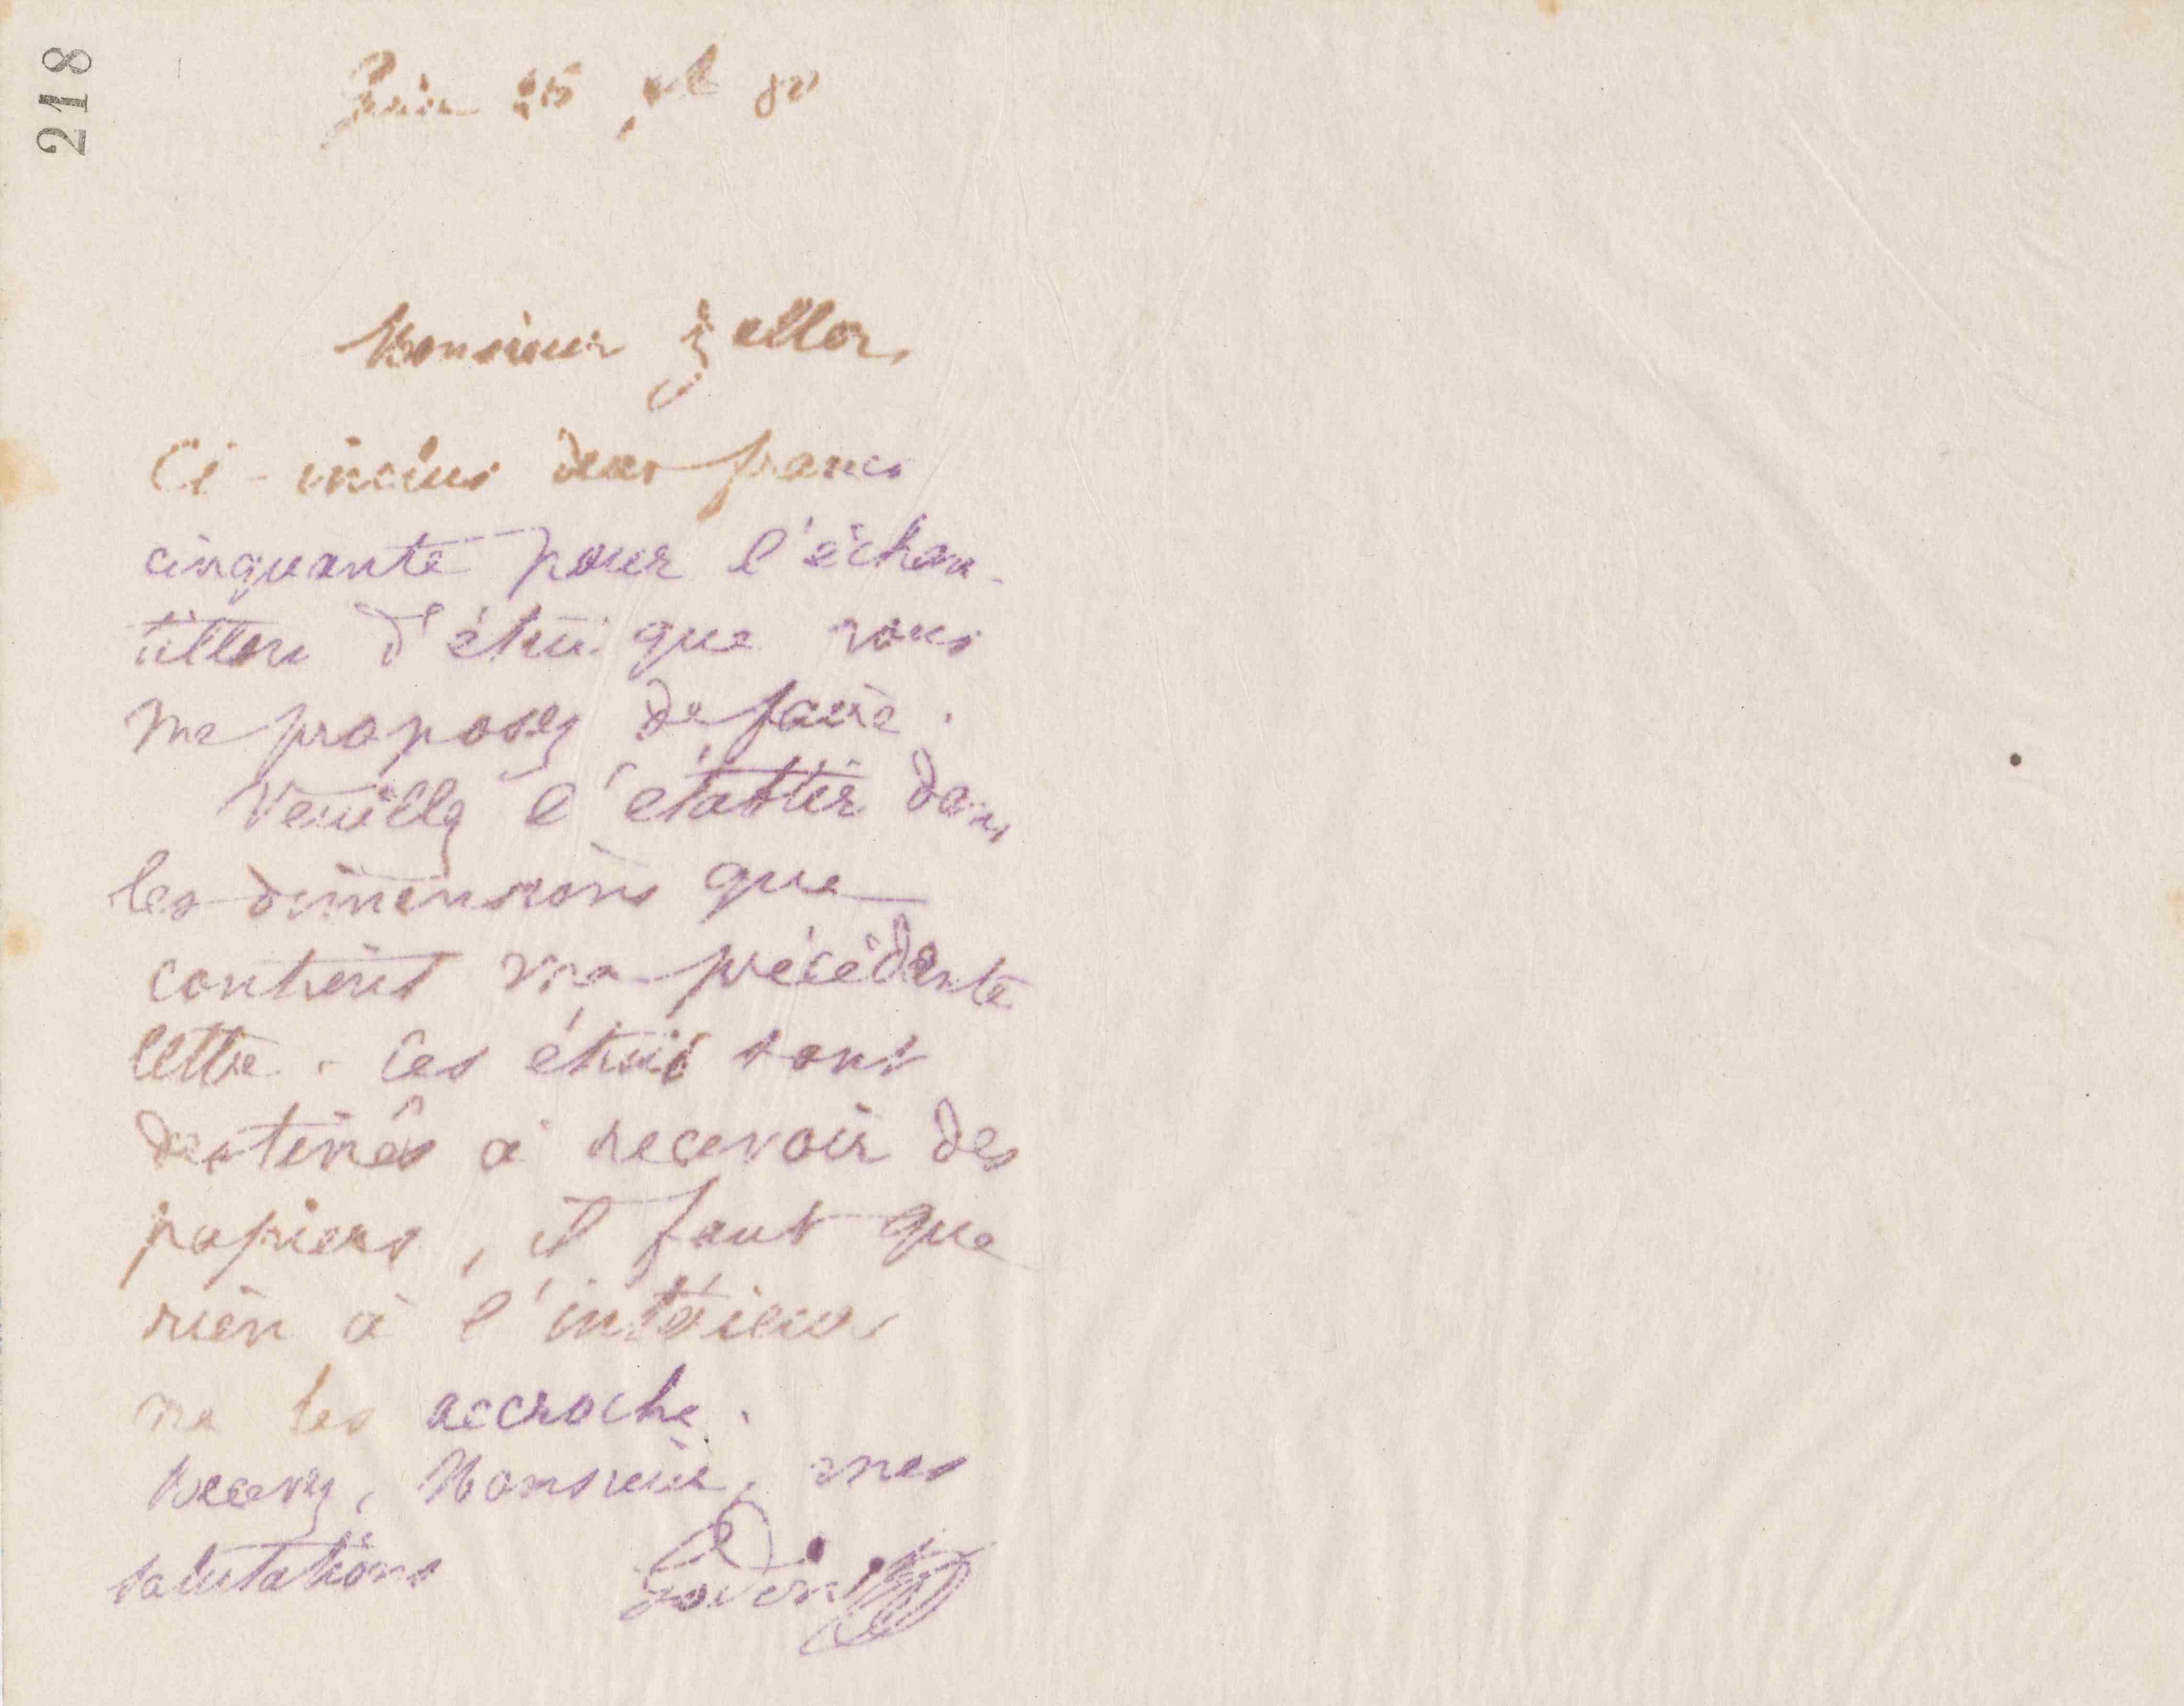 218
Guise 26 80
Monsieur Zeller,
Ci-inclus deux francs
cinquante pour l'échan-
tillon d'étui que vous
me proposez de faire.
Veuillez l'établir dans
les dimensions que
contient ma précédente
lettre. Ces étuis sont
destinés à recevoir des
papiers, il faut que
rien à l'intérieur
ne les accroche.
Recevez, Monsieur, mes
salutations Godin